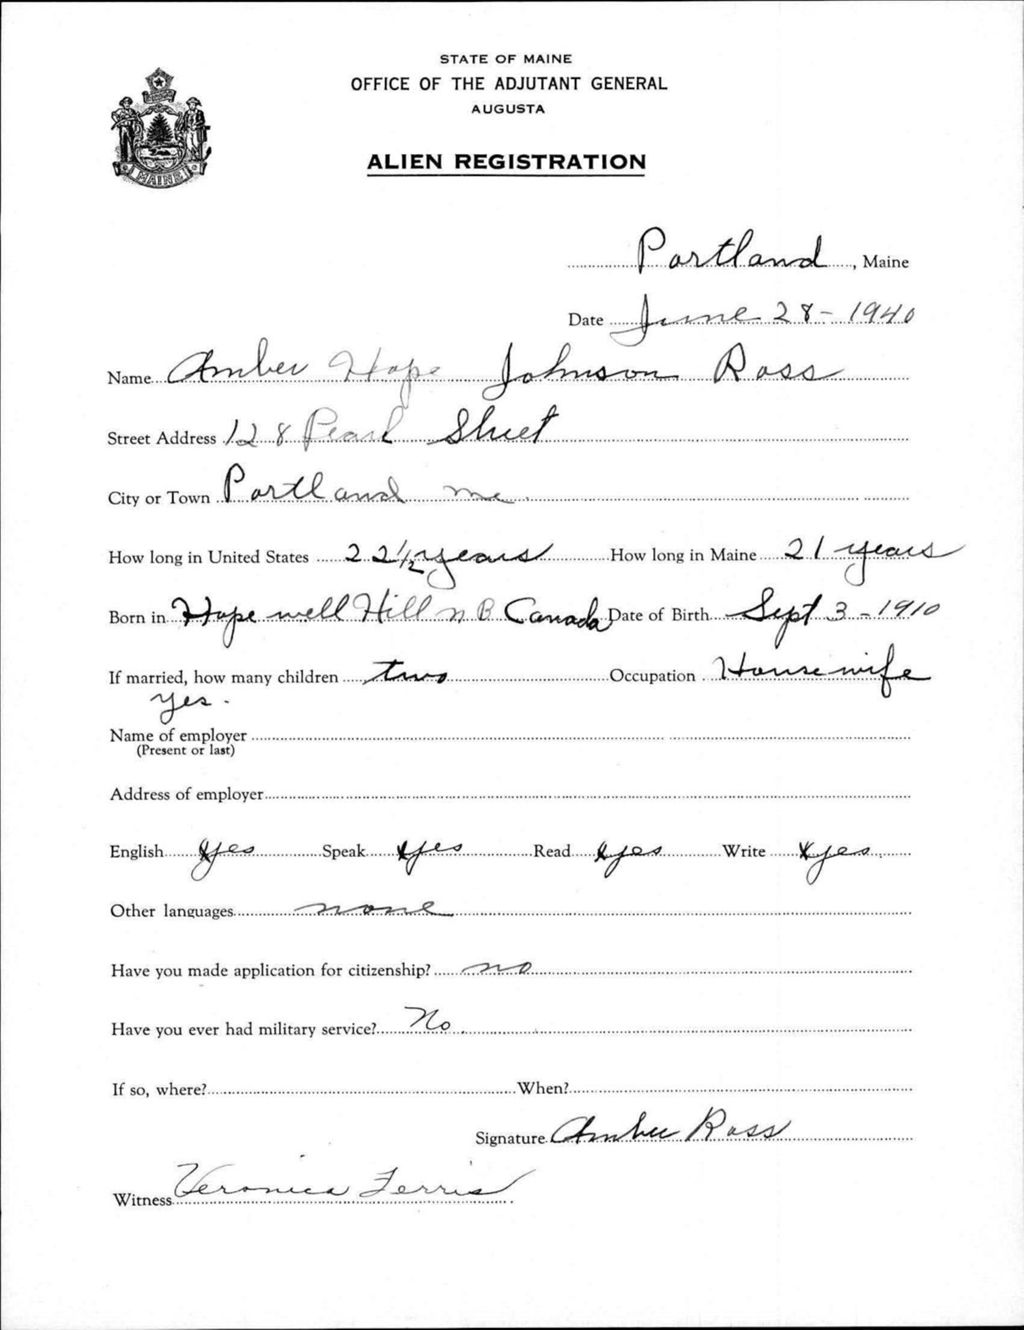 STATE OF MAINE
OFFICE OF THE ADJUTANT GENERAL
AUGUSTA
ALIEN REGISTRATION
MAINE
Portland, Maine
Date June 28-1940
Name Amber Hope Johnson Ross
Street Address 128 Pearl Street
City or Town Portland me.
How long in United States 22 1/2 years How long in Maine 21 years
Born in Hopewell Hill N B Canada Date of Birth Sept 3-1910
If married, how many children two Occupation Housewife
yes.
Name of employer
(Present or last)
Address of employer
English yes Speak yes Read yes Write yes
Other languages none
Have you made application for citizenship? no
Have you ever had military service? No.
If so, where? When?
Signature Amber Ross
Witness Veronica Ferris